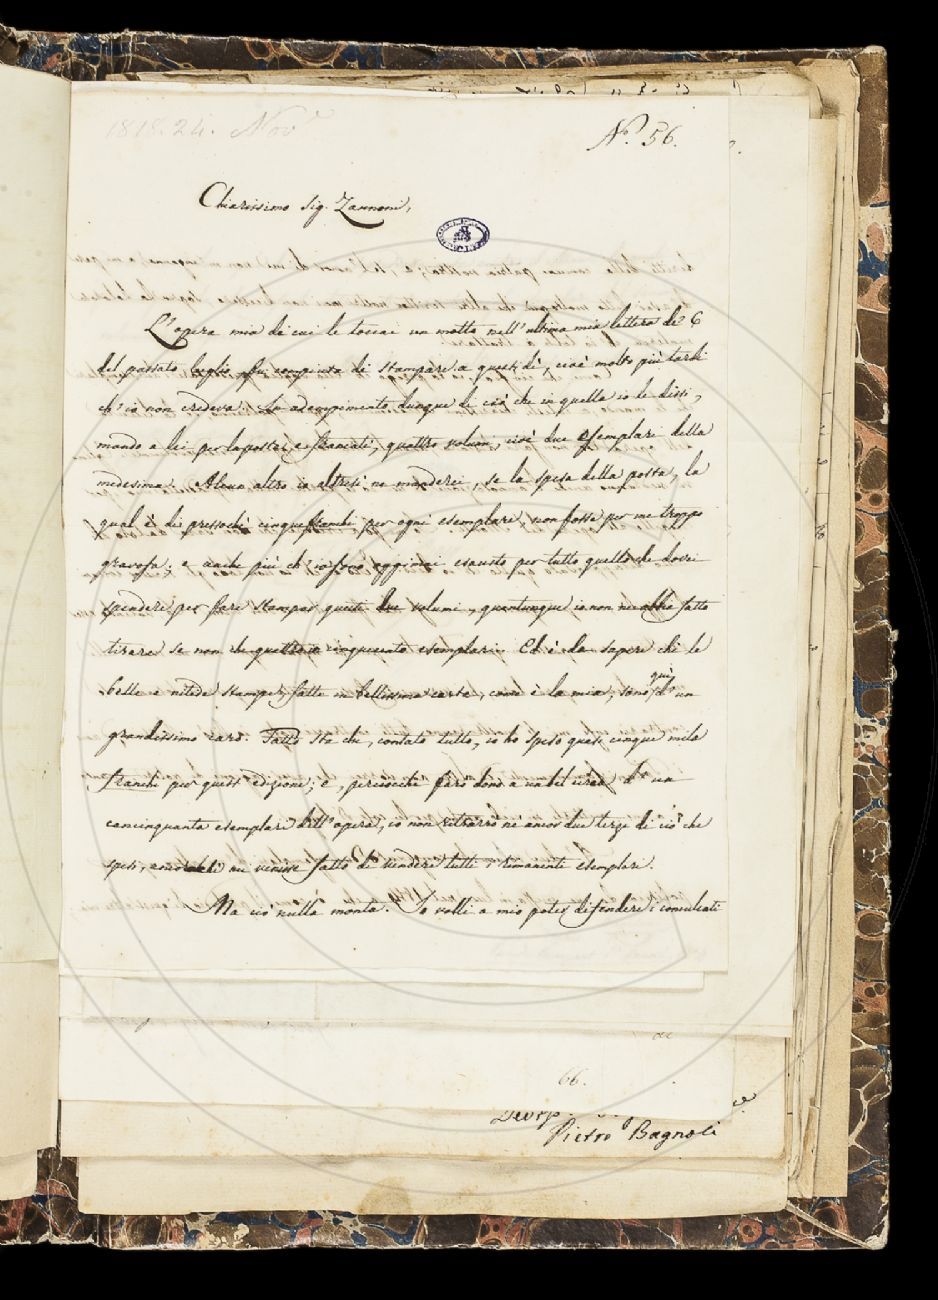 1818. 24. Nov.e
N.° 56.
Chiarissimo Sig. Zannoni,
L'opera mia di cui le toccai un motto nell'ultima mia lettera de' 6
del passato luglio, fu compiuta di stampare a questi dì, cioè molto più tardi
ch'io non credeva. In adempimento dunque di ciò che in quella io le dissi,
mando a lei per la posta, e francati, quattro volumi, cioè due esemplari della
medesima. Alcun altro io altresì ne manderei, se la spesa della posta, la
qual è di pressochè cinque franchi per ogni esemplare, non fosse per me troppo
gravosa; e anche più ch'io sono oggimai esausto per tutto quello che dovei
spendere per fare stampar questi due volumi, quantunque io non ne abbia fatto
tirare se non che quattro in cinquecento esemplari. Ed è da sapere che le
belle e nitide stampe, fatte in bellissima carta, come è la mia, sono quì d'un
grandissimo caro. Fatto sta che, contato tutto, io ho speso quasi cinque mila
franchi per questa edizione; e, perciocchè farò dono a un bel circa d'un
cencinquanta esemplari dell'opera, io non ritrarrò nè ancor due terzi di ciò che
spesi, quando mi venisse fatto di vendere tutti i rimanenti esemplari.
Ma ciò nulla monta. Io volli a mio poter difendere i conculcati
66.
Pietro Bagnoli